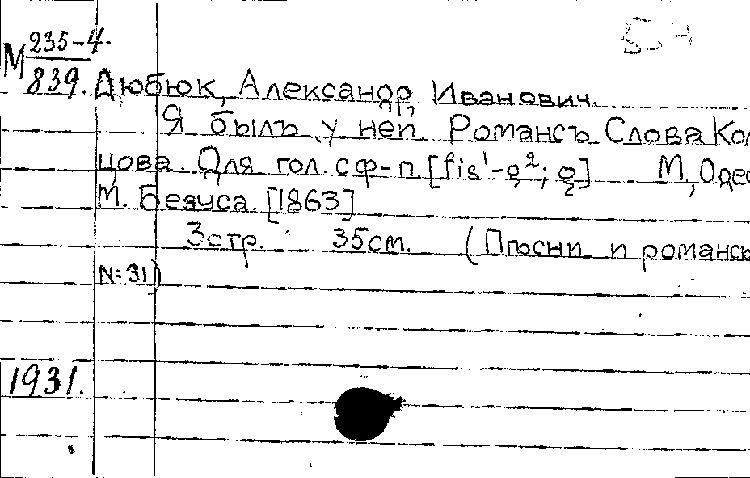 М 235-4.
839.
Дюбюк, Александр Иванович.
Я былъ у ней. Романсъ. Слова Коль
цова. Для гол. с ф-п. [fis¹-g²; g]   М, Одес
М. Бернса. [1863]
3 стр.   35 см.   (Пѣсни и романсы
№ 31)
1931.